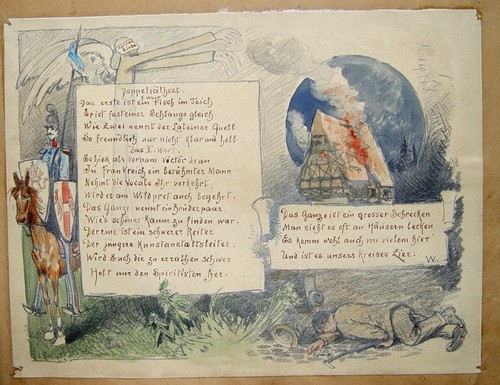 Doppelräthsel.
I. Wort.
Das erste ist ein Fisch im Teich
Er ist fast einer Schlange gleich
Wie Zwei nennt der Lateiner Quell
So freundlich nur nicht klar und hell
Das II. Wort.
So hies als vornam Victor dran
In Frankreich ein berühmter Mann
Nehmt die Vocale Ihr verkehrt
Wird es am Wildpret auch begehrt.
Das Ganze nennt ein Brüderpaar
Wie's schöner kaum zu finden war.
Der eine ist ein schwerer Reiter
Der jüngere Kunstanstaltsleiter.
Wird Euch die zu erzahlen schwer
Holt nur den Spiritisten her.
Das Ganze ist ein grosser Schrecken
Man sieht es oft an Häusern lecken
Es komm wohl auch vor vielem hier
Und ist es unsers Kreises Zier.
W.